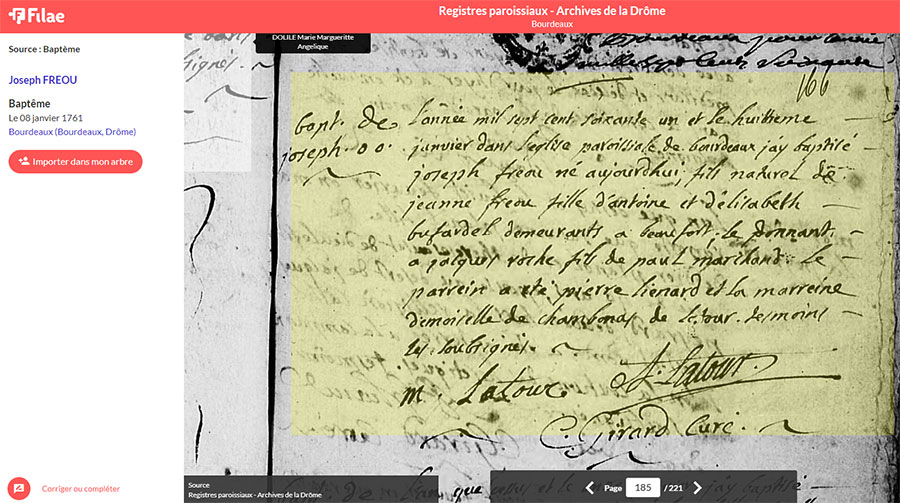 Filae
Registres paroissiaux - Archives de la Drôme
Bourdeaux
Source : Baptême
Joseph FREOU
Baptême
Le 08 janvier 1761
Bourdeaux (Bourdeaux, Drôme)
Importer dans mon arbre
Corriger ou compléter
DOLILE Marie Margueritte
Angelique
166
bapt. de
joseph. o o.
L'année mil sept cent soixante un et le huitieme
janvier dans l'eglise paroissiale de bourdeaux jay baptisé
joseph freou né aujourdhui, fils naturel de
jeanne freou fille d'antoine et d'élisabeth
bufardel demeurants a beaufort, le donnant
a jacques roche fils de paul marchand. Le
parrein a eté pierre lienard et la marreine
demoiselle de chambonas de latour. temoins
les soubsignés.
m. Latour
Latour
C. Girard Curé.
Source
Registres paroissiaux - Archives de la Drôme
Page 185 / 221